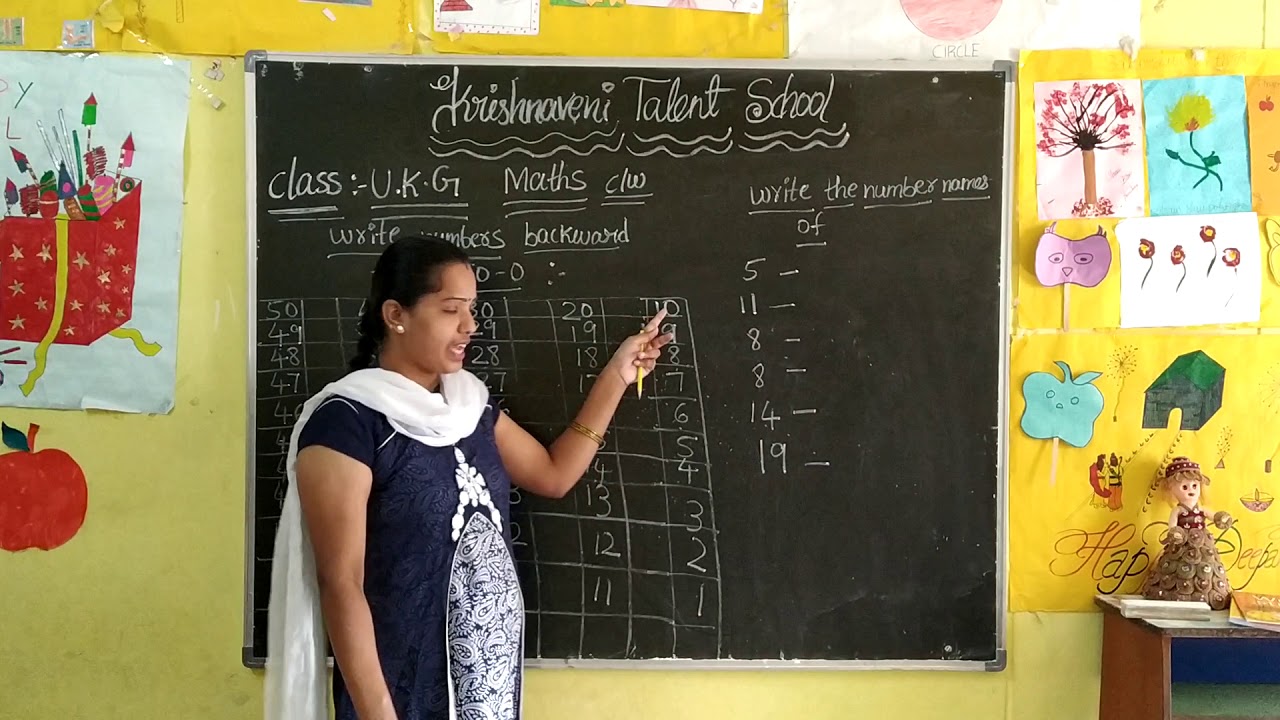 CIRCLE
P Y
L
Krishnaveni Talent School
class :- U.K.G Maths c/w
write numbers backward
0-0 :-
50 30 20 10
49 29 19 9
48 28 18 8
47 27 17 7
6
5
14 4
13 3
12 2
11 1
write the number names
of
5 -
11 -
8 -
8 -
14 -
19 -